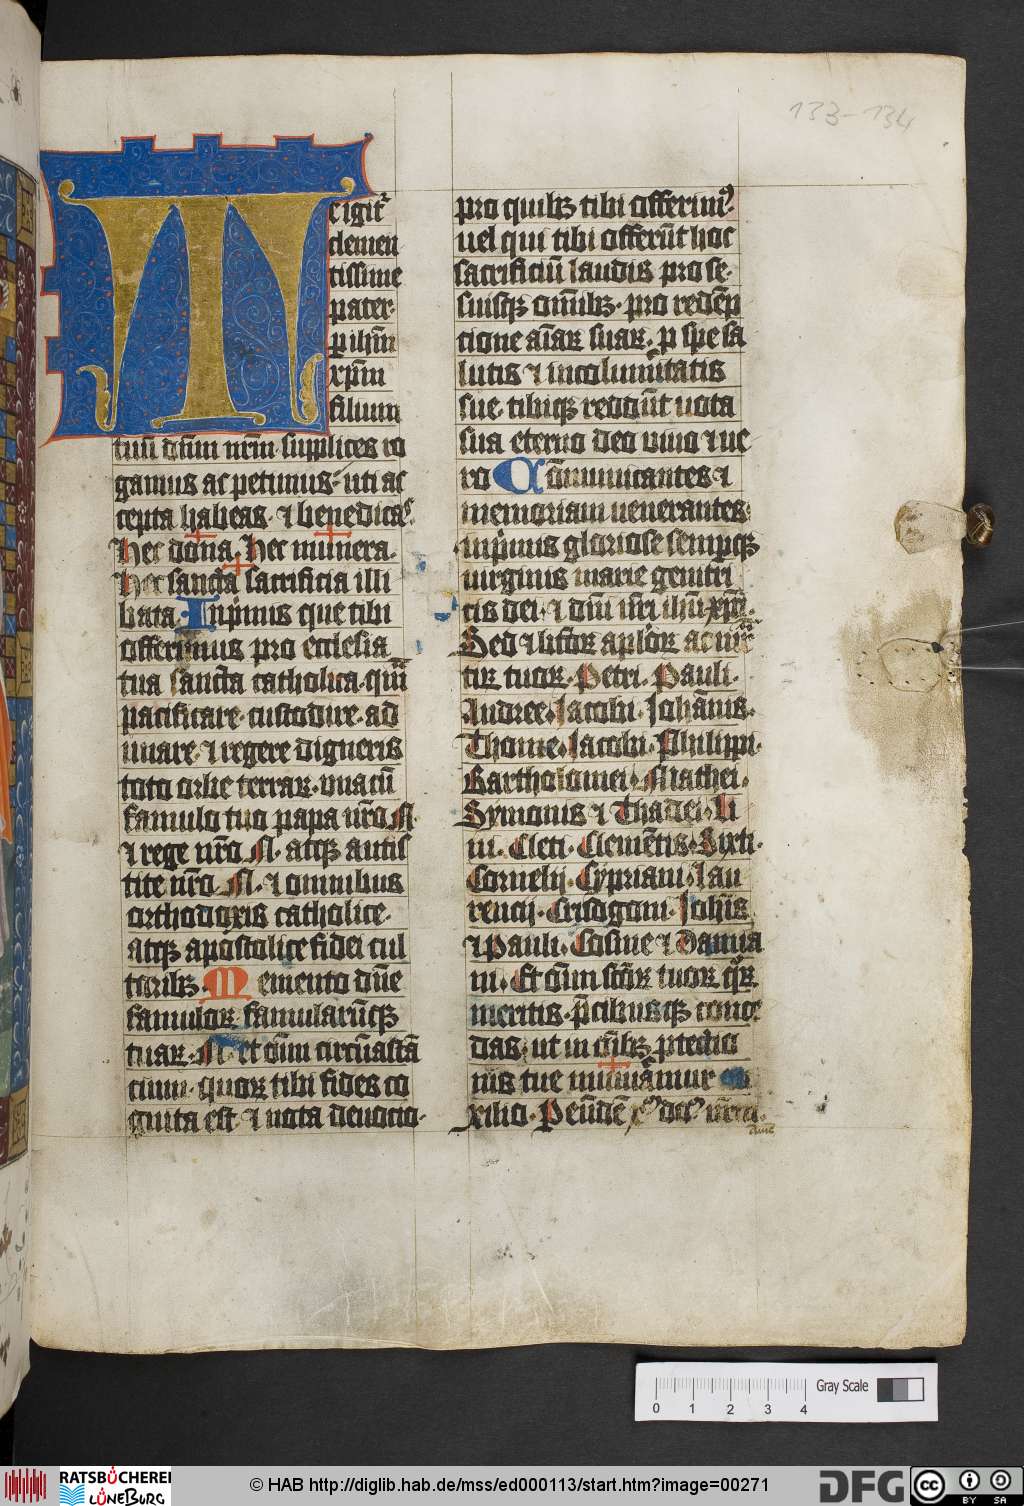 133-134
TE igitᷣ
clemen
tissime
pater·
ꝑ ihm̄
xp̄m
filium
tuū dn̄m nr̄m supplices ro
gamus ac petimus· uti ac
cepta habeas· ⁊ benedicas
hec dona· hec munera·
Hec sancta sacrificia illi
bata· Inprimis que tibi
offerimus pro ecclesia
tua sancta catholica· quā
pacificare· custodire· ad
unare· ⁊ regere digneris
toto orbe terraꝝ· vnacū
famulo tuo papa nr̄o N
⁊ rege nr̄o N· atqꝫ antis
tite nr̄o N· ⁊ omnibus
orthodoxis catholice·
atqꝫ apostolice fidei cul
toribꝫ· Memento dn̄e
famuloꝝ famularūqꝫ
tuaꝝ· N· et om̄ circūastā
cium· quoꝝ tibi fides co
gnita est ⁊ nota deuocio·
pro quibꝫ tibi offerimꝰ
uel qui tibi offerūt hoc
sacrificiū laudis pro se·
suisqꝫ om̄ibꝫ· pro redēp
tione aīaꝝ suaꝝ· ꝓ spe sa
lutis ⁊ incolumitatis
sue· tibiqꝫ reddūt uota
sua eterno deo uiuo ⁊ ue
ro Cōmunicantes ⁊
memoriam uenerantes·
inprimis gloriose semperqꝫ
uirginis marie genitri
cis dei· ⁊ dn̄i nr̄i ihū xp̄i·
Sed ⁊ btōꝝ aploꝝ ac mr̄
tiꝝ tuoꝝ· Petri· Pauli·
Andree· Jacobi· Johānis·
Thome· Jacobi· Philippi·
Bartholomei· Mathei·
Symonis ⁊ Thadei· Li
ni· Cleti· Clemētis· Sixti·
Cornelij· Cypriani· Lau
rencij· Crisogoni· Johīs
⁊ Pauli· Cosme ⁊ Damia
ni· Et om̄ scōꝝ tuoꝝ qꝛ
meritis· p̄cibusqꝫ conce
das· ut in oībꝫ ꝓtectio
nis tue muniamur au
xilio· Per eūdē xp̄m dn̄m nr̄m·
Gray Scale
0 1 2 3 4
RATSBÜCHEREI
LÜNEBURG
© HAB http://diglib.hab.de/mss/ed000113/start.htm?image=00271
DFG
cc
BY SA